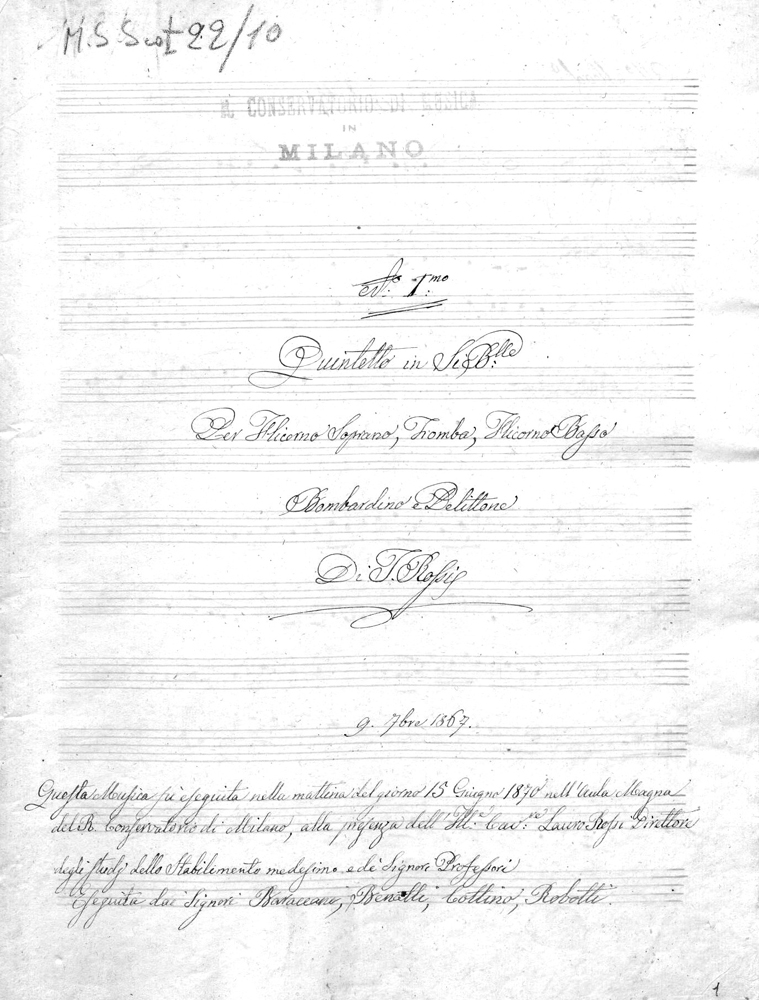 M.S Scat 22/10
R. CONSERVATORIO DI MUSICA
IN
MILANO
N.° 1.mo
Quintetto in Si B.lle
Per Flicorno Soprano, Tromba, Flicorno Basso
Bombardino e Pelittone
Di T. Rossi
9. 7bre 1867.
Questa Musica fu eseguita nella mattina del giorno 15 Giugno 1870 nell'Aula Magna
del R. Conservatorio di Milano, alla presenza dell'Ill.e Cav.re Lauro Rossi Direttore
degli studj dello Stabilimento medesimo e de' Signori Professori
Eseguita dai Signori Benatti, Cottino, Robotti.
1